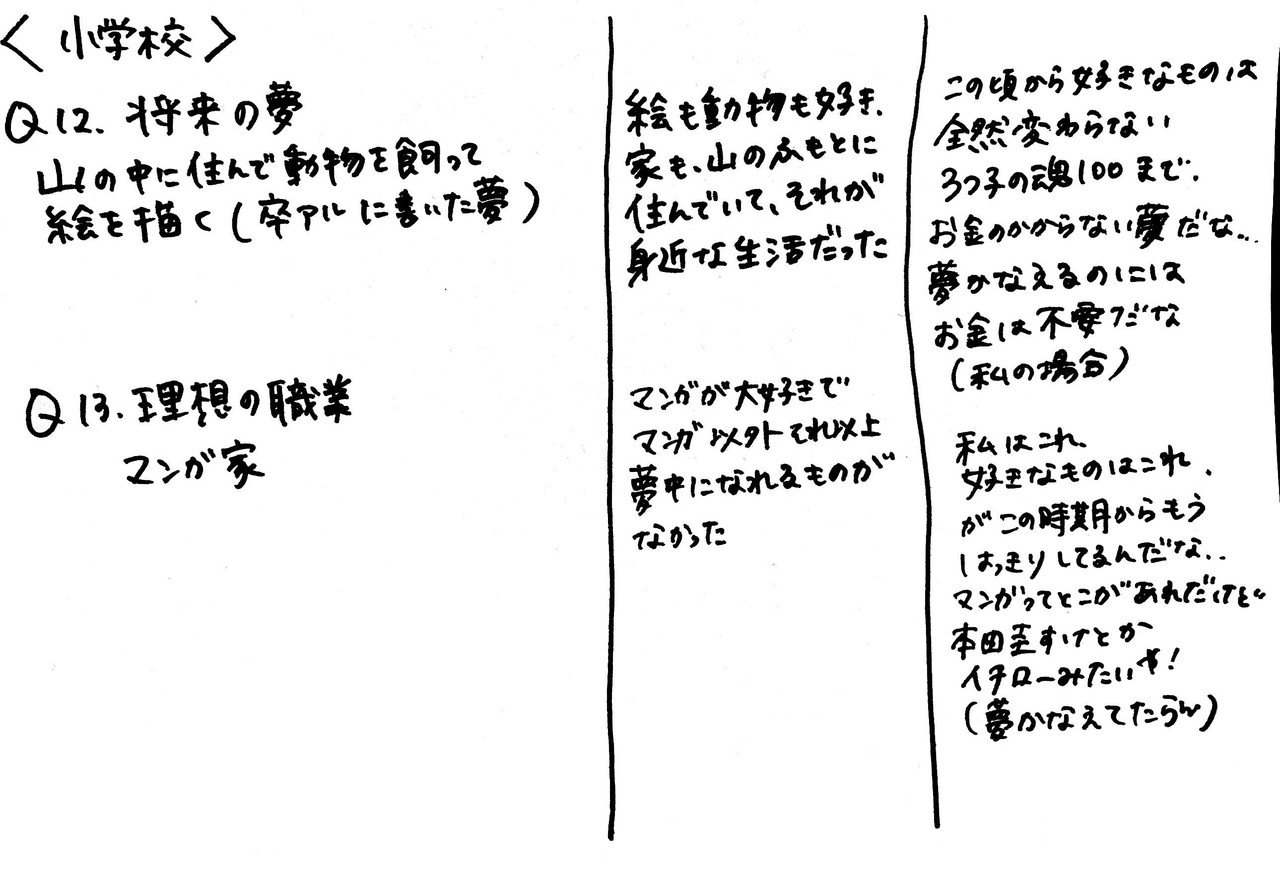 <小学校>
Q12. 将来の夢
山の中に住んで動物を飼って
絵を描く(卒アルに書いた夢)
絵も動物も好き、
家も、山のふもとに
住んでいて、それが
身近な生活だった
この頃から好きなものは
全然変わらない
3つ子の魂100まで.
お金のかからない夢だな...
夢かなえるのには
お金は不要だな
(私の場合)
Q13. 理想の職業
マンガ家
マンガが大好きで
マンガ以外それ以上
夢中になれるものが
なかった
私はこれ、
好きなものはこれ.
がこの時期からもう
はっきりしてるんだな..
マンガってとこがあれだけど"
本田圭すけとか
イチローみたいや!
(夢かなえてたらw)